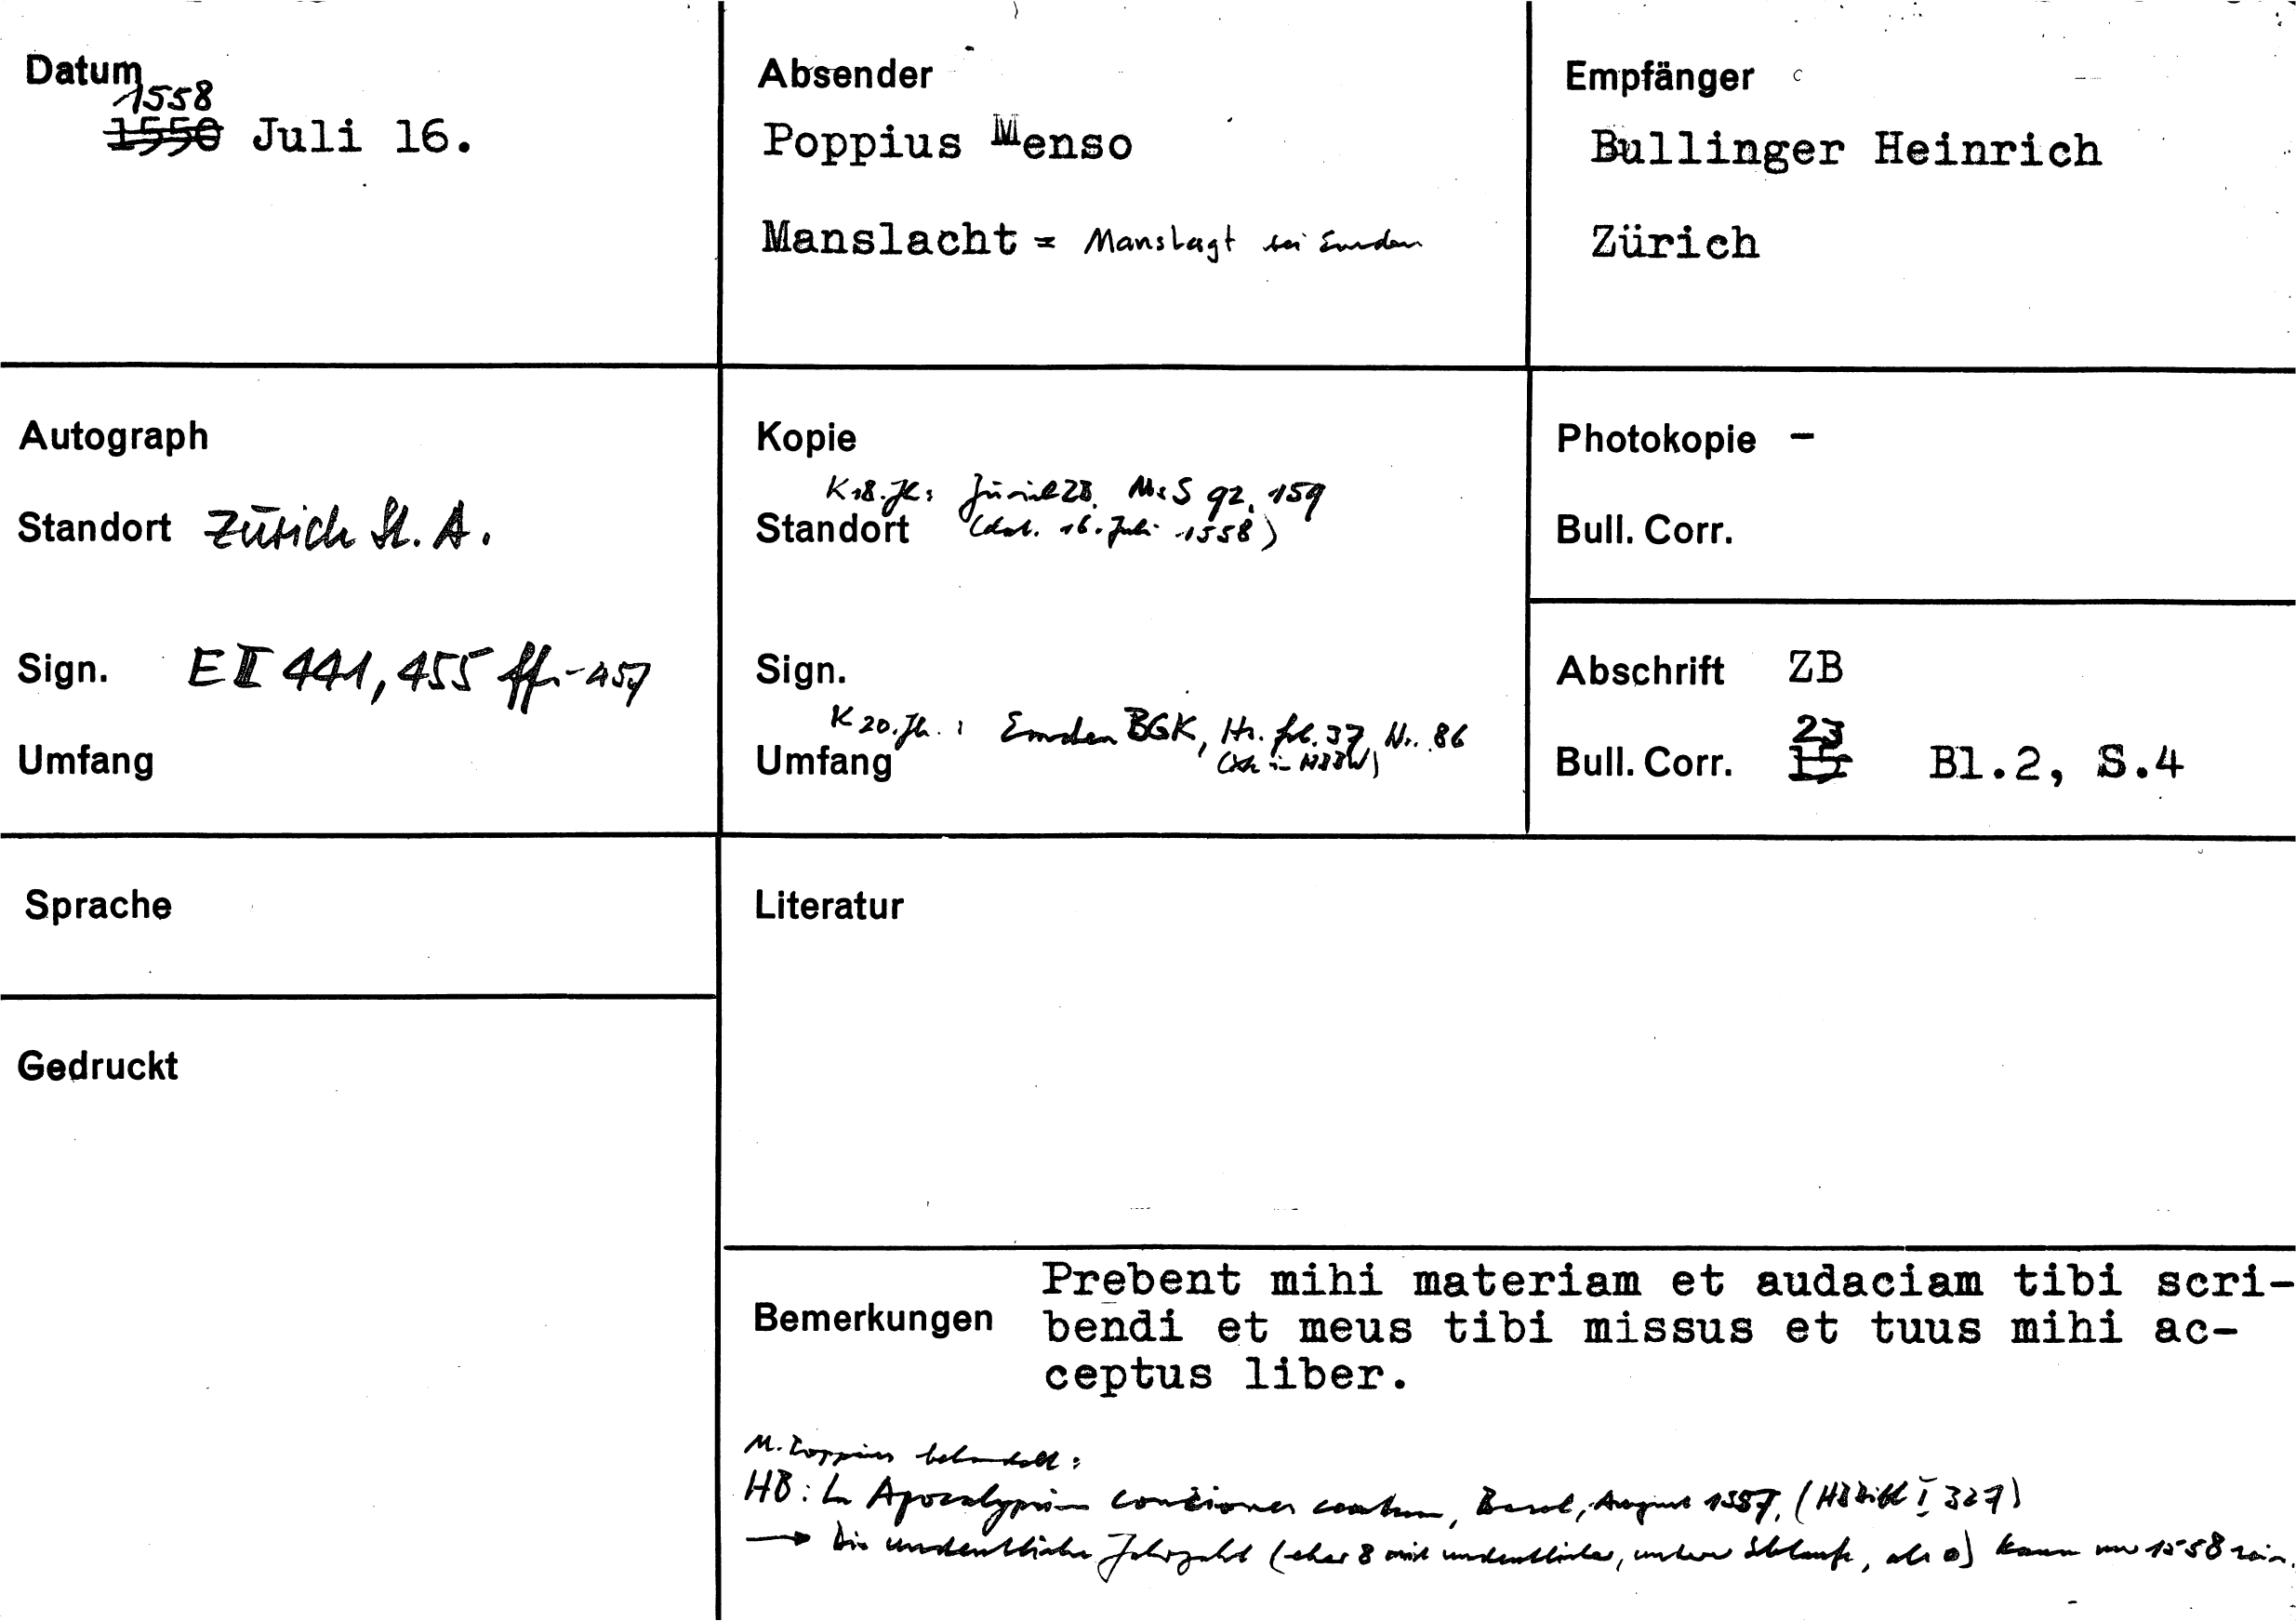 Datum
1558
1550 Juli 16.
Absender
Poppius Menso
Manslacht = Manslagt bei Emden
Empfänger
Bullinger Heinrich
Zürich
Autograph
Standort Zürich St. A.
Sign. E II 441, 455 ff.-457
Umfang
Kopie
K 18. Jh.: Zürich ZB, Ms S 92, 159
Standort (dat. 16. Juli 1558)
Sign.
K 20. Jh.: Emden BGK, Hs. fol. 37, Nr. 86
Umfang
Photokopie -
Bull. Corr.
Abschrift ZB
23
Bull. Corr. 15 Bl.2, S.4
Sprache
Gedruckt
Literatur
Bemerkungen
Prebent mihi materiam et audaciam tibi scri-
bendi et meus tibi missus et tuus mihi ac-
ceptus liber.
M. Poppius behandelt:
HB: In Apocalypsim conciones centum, Basel, August 1557, (HBBibl I 327)
→ Die undeutliche Jahrzahl (eher 8 mit undeutlicher, unterer Schlaufe, als 0) kann nur 1558 sein.